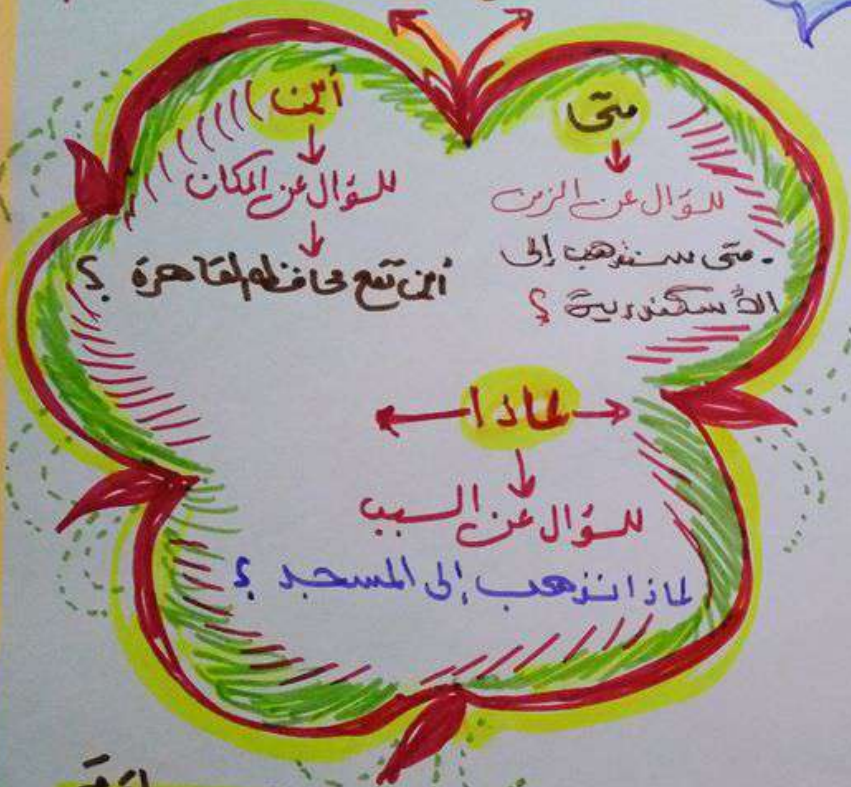 متى
للسؤال عن الزمن
. متى ستذهب إلى
الأسكندرية ؟
أين
للسؤال عن المكان
أين تقع محافظة القاهرة ؟
لماذا
للسؤال عن السبب
لماذا نذهب إلى المسجد ؟